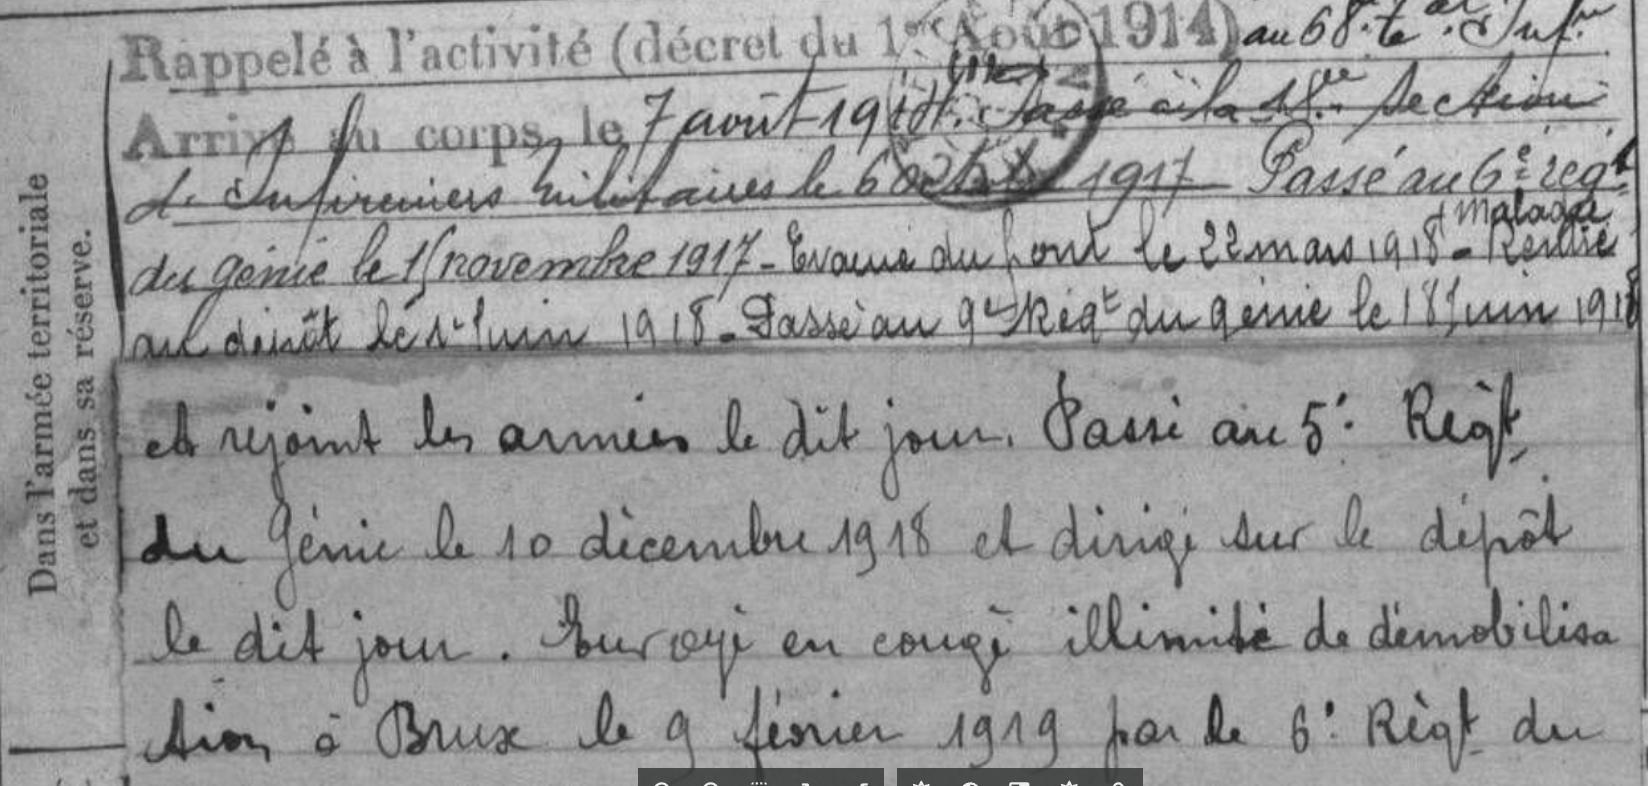 Dans l'armée territoriale
et dans sa réserve.
Rappelé à l'activité (décret du 1er Août 1914) au 68e tal Infie
Arrivé au corps, le 7 août 1914. Passé à la 18me Section
d'Infirmiers militaires le 6 octobre 1917 Passé au 6e régt
du génie le 15 novembre 1917 - Evacué du front le 22 mars 1918 malade - Rentré
au dépôt le 1er Juin 1918 - Passé au 9e Régt du génie le 18 Juin 1918
et rejoint les armées le dit jour. Passé au 5e Régt
du Génie le 10 décembre 1918 et dirigé sur le dépôt
le dit jour. Envoyé en congé illimité de démobilisa
tion à Brux le 9 février 1919 par le 6e Régt du